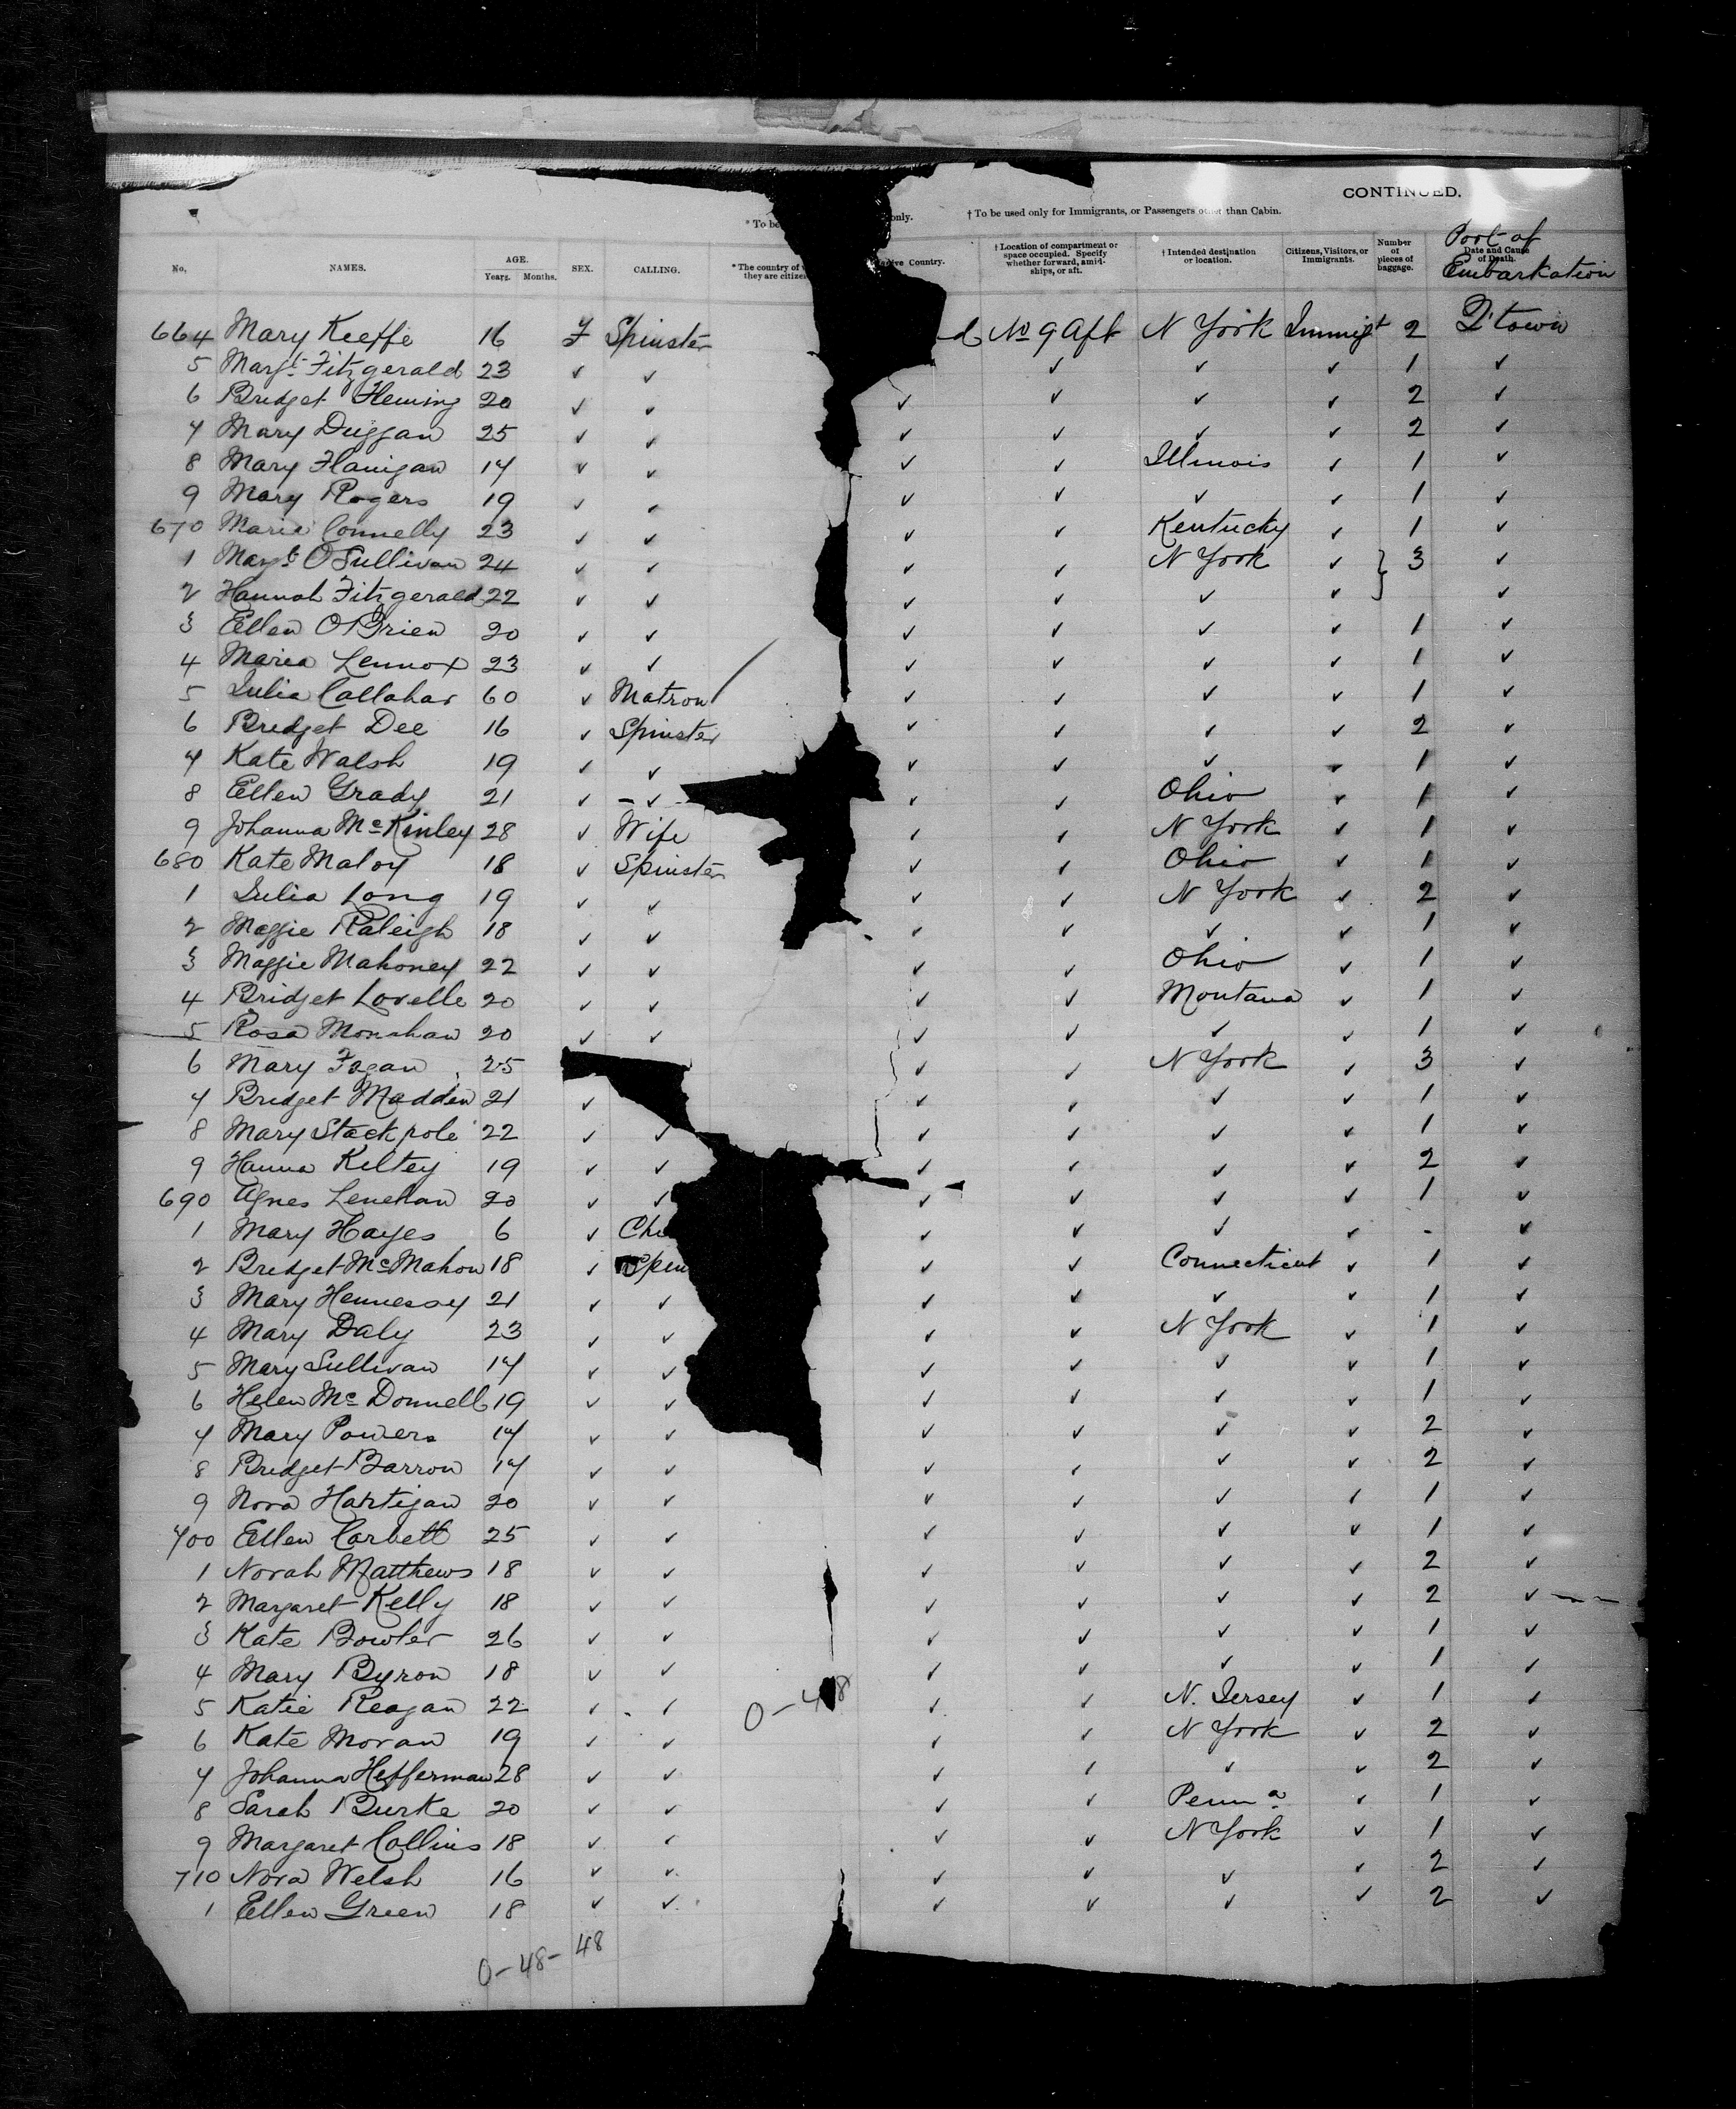 CONTINUED.
* To be only. † To be used only for Immigrants, or Passengers other than Cabin.
No. NAMES. AGE. Years. Months. SEX. CALLING. * The country of they are citize Country. † Location of compartment or space occupied. Specify whether forward, amid-ships, or aft. † Intended destination or location. Citizens, Visitors, or Immigrants. Number of pieces of baggage. Date and Cause of Death. Port of Embarkation
664 Mary Keeffe 16 F Spinster d No 9 Aft N York Immigt 2 Q'town
5 Margt Fitzgerald 23 ✓ ✓ ✓ ✓ ✓ 1 ✓
6 Bridget Fleming 20 ✓ ✓ ✓ ✓ ✓ ✓ 2 ✓
7 Mary Duggan 25 ✓ ✓ ✓ ✓ ✓ ✓ 2 ✓
8 Mary Flanigan 17 ✓ ✓ ✓ ✓ Illinois ✓ 1 ✓
9 Mary Rogers 19 ✓ ✓ ✓ ✓ ✓ ✓ 1 ✓
670 Maria Connelly 23 ✓ ✓ ✓ ✓ Kentucky ✓ 1 ✓
1 Margt O'Sullivan 24 ✓ ✓ ✓ ✓ N York ✓ } 3 ✓
2 Hannah Fitzgerald 22 ✓ ✓ ✓ ✓ ✓ ✓ ✓
3 Ellen O'Brien 20 ✓ ✓ ✓ ✓ ✓ ✓ 1 ✓
4 Maria Lennox 23 ✓ ✓ ✓ ✓ ✓ ✓ 1 ✓
5 Julia Callahar 60 ✓ Matron ✓ ✓ ✓ ✓ 1 ✓
6 Bridget Dee 16 ✓ Spinster ✓ ✓ ✓ ✓ 2 ✓
7 Kate Walsh 19 ✓ ✓ ✓ ✓ ✓ ✓ 1 ✓
8 Ellen Grady 21 ✓ – ✓ ✓ ✓ Ohio ✓ 1 ✓
9 Johanna McKinley 28 ✓ Wife ✓ ✓ N York ✓ 1 ✓
680 Kate Maloy 18 ✓ Spinster ✓ ✓ Ohio ✓ 1 ✓
1 Julia Long 19 ✓ ✓ ✓ ✓ N York ✓ 2 ✓
2 Maggie Raleigh 18 ✓ ✓ ✓ ✓ ✓ ✓ 1 ✓
3 Maggie Mahoney 22 ✓ ✓ ✓ ✓ Ohio ✓ 1 ✓
4 Bridget Lovelle 20 ✓ ✓ ✓ ✓ Montana ✓ 1 ✓
5 Rosa Monahan 20 ✓ ✓ ✓ ✓ ✓ ✓ 1 ✓
6 Mary Fagan 25 ✓ ✓ N York ✓ 3 ✓
7 Bridget Madden 21 ✓ ✓ ✓ ✓ ✓ 1 ✓
8 Mary Stackpole 22 ✓ ✓ ✓ ✓ ✓ ✓ 1 ✓
9 Hanna Kiltey 19 ✓ ✓ ✓ ✓ ✓ ✓ 2 ✓
690 Agnes Lenehan 20 ✓ ✓ ✓ ✓ ✓ ✓ 1 ✓
1 Mary Hayes 6 ✓ Chi ✓ ✓ ✓ ✓ - ✓
2 Bridget McMahon 18 ✓ Spin ✓ ✓ Connecticut ✓ 1 ✓
3 Mary Hennessy 21 ✓ ✓ ✓ ✓ ✓ ✓ 1 ✓
4 Mary Daly 23 ✓ ✓ ✓ ✓ N York ✓ 1 ✓
5 Mary Sullivan 17 ✓ ✓ ✓ ✓ ✓ ✓ 1 ✓
6 Helen McDonnell 19 ✓ ✓ ✓ ✓ ✓ ✓ 1 ✓
7 Mary Powers 17 ✓ ✓ ✓ ✓ ✓ ✓ 2 ✓
8 Bridget Barron 17 ✓ ✓ ✓ ✓ ✓ ✓ 2 ✓
9 Nora Hartigan 20 ✓ ✓ ✓ ✓ ✓ ✓ 1 ✓
700 Ellen Corbett 25 ✓ ✓ ✓ ✓ ✓ ✓ 1 ✓
1 Norah Matthews 18 ✓ ✓ ✓ ✓ ✓ ✓ 2 ✓
2 Margaret Kelly 18 ✓ ✓ ✓ ✓ ✓ ✓ 2 ✓
3 Kate Bowler 26 ✓ ✓ ✓ ✓ ✓ ✓ 1 ✓
4 Mary Byron 18 ✓ ✓ ✓ ✓ ✓ ✓ 1 ✓
5 Katie Reagan 22 ✓ ✓ 0-48 ✓ ✓ N. Jersey ✓ 1 ✓
6 Kate Moran 19 ✓ ✓ ✓ ✓ N York ✓ 2 ✓
7 Johanna Hefferman 28 ✓ ✓ ✓ ✓ ✓ ✓ 2 ✓
8 Sarah Burke 20 ✓ ✓ ✓ ✓ Penna ✓ 1 ✓
9 Margaret Collins 18 ✓ ✓ ✓ ✓ N York ✓ 1 ✓
710 Nora Welsh 16 ✓ ✓ ✓ ✓ ✓ ✓ 2 ✓
1 Ellen Green 18 ✓ ✓ ✓ ✓ ✓ ✓ 2 ✓
0-48-48